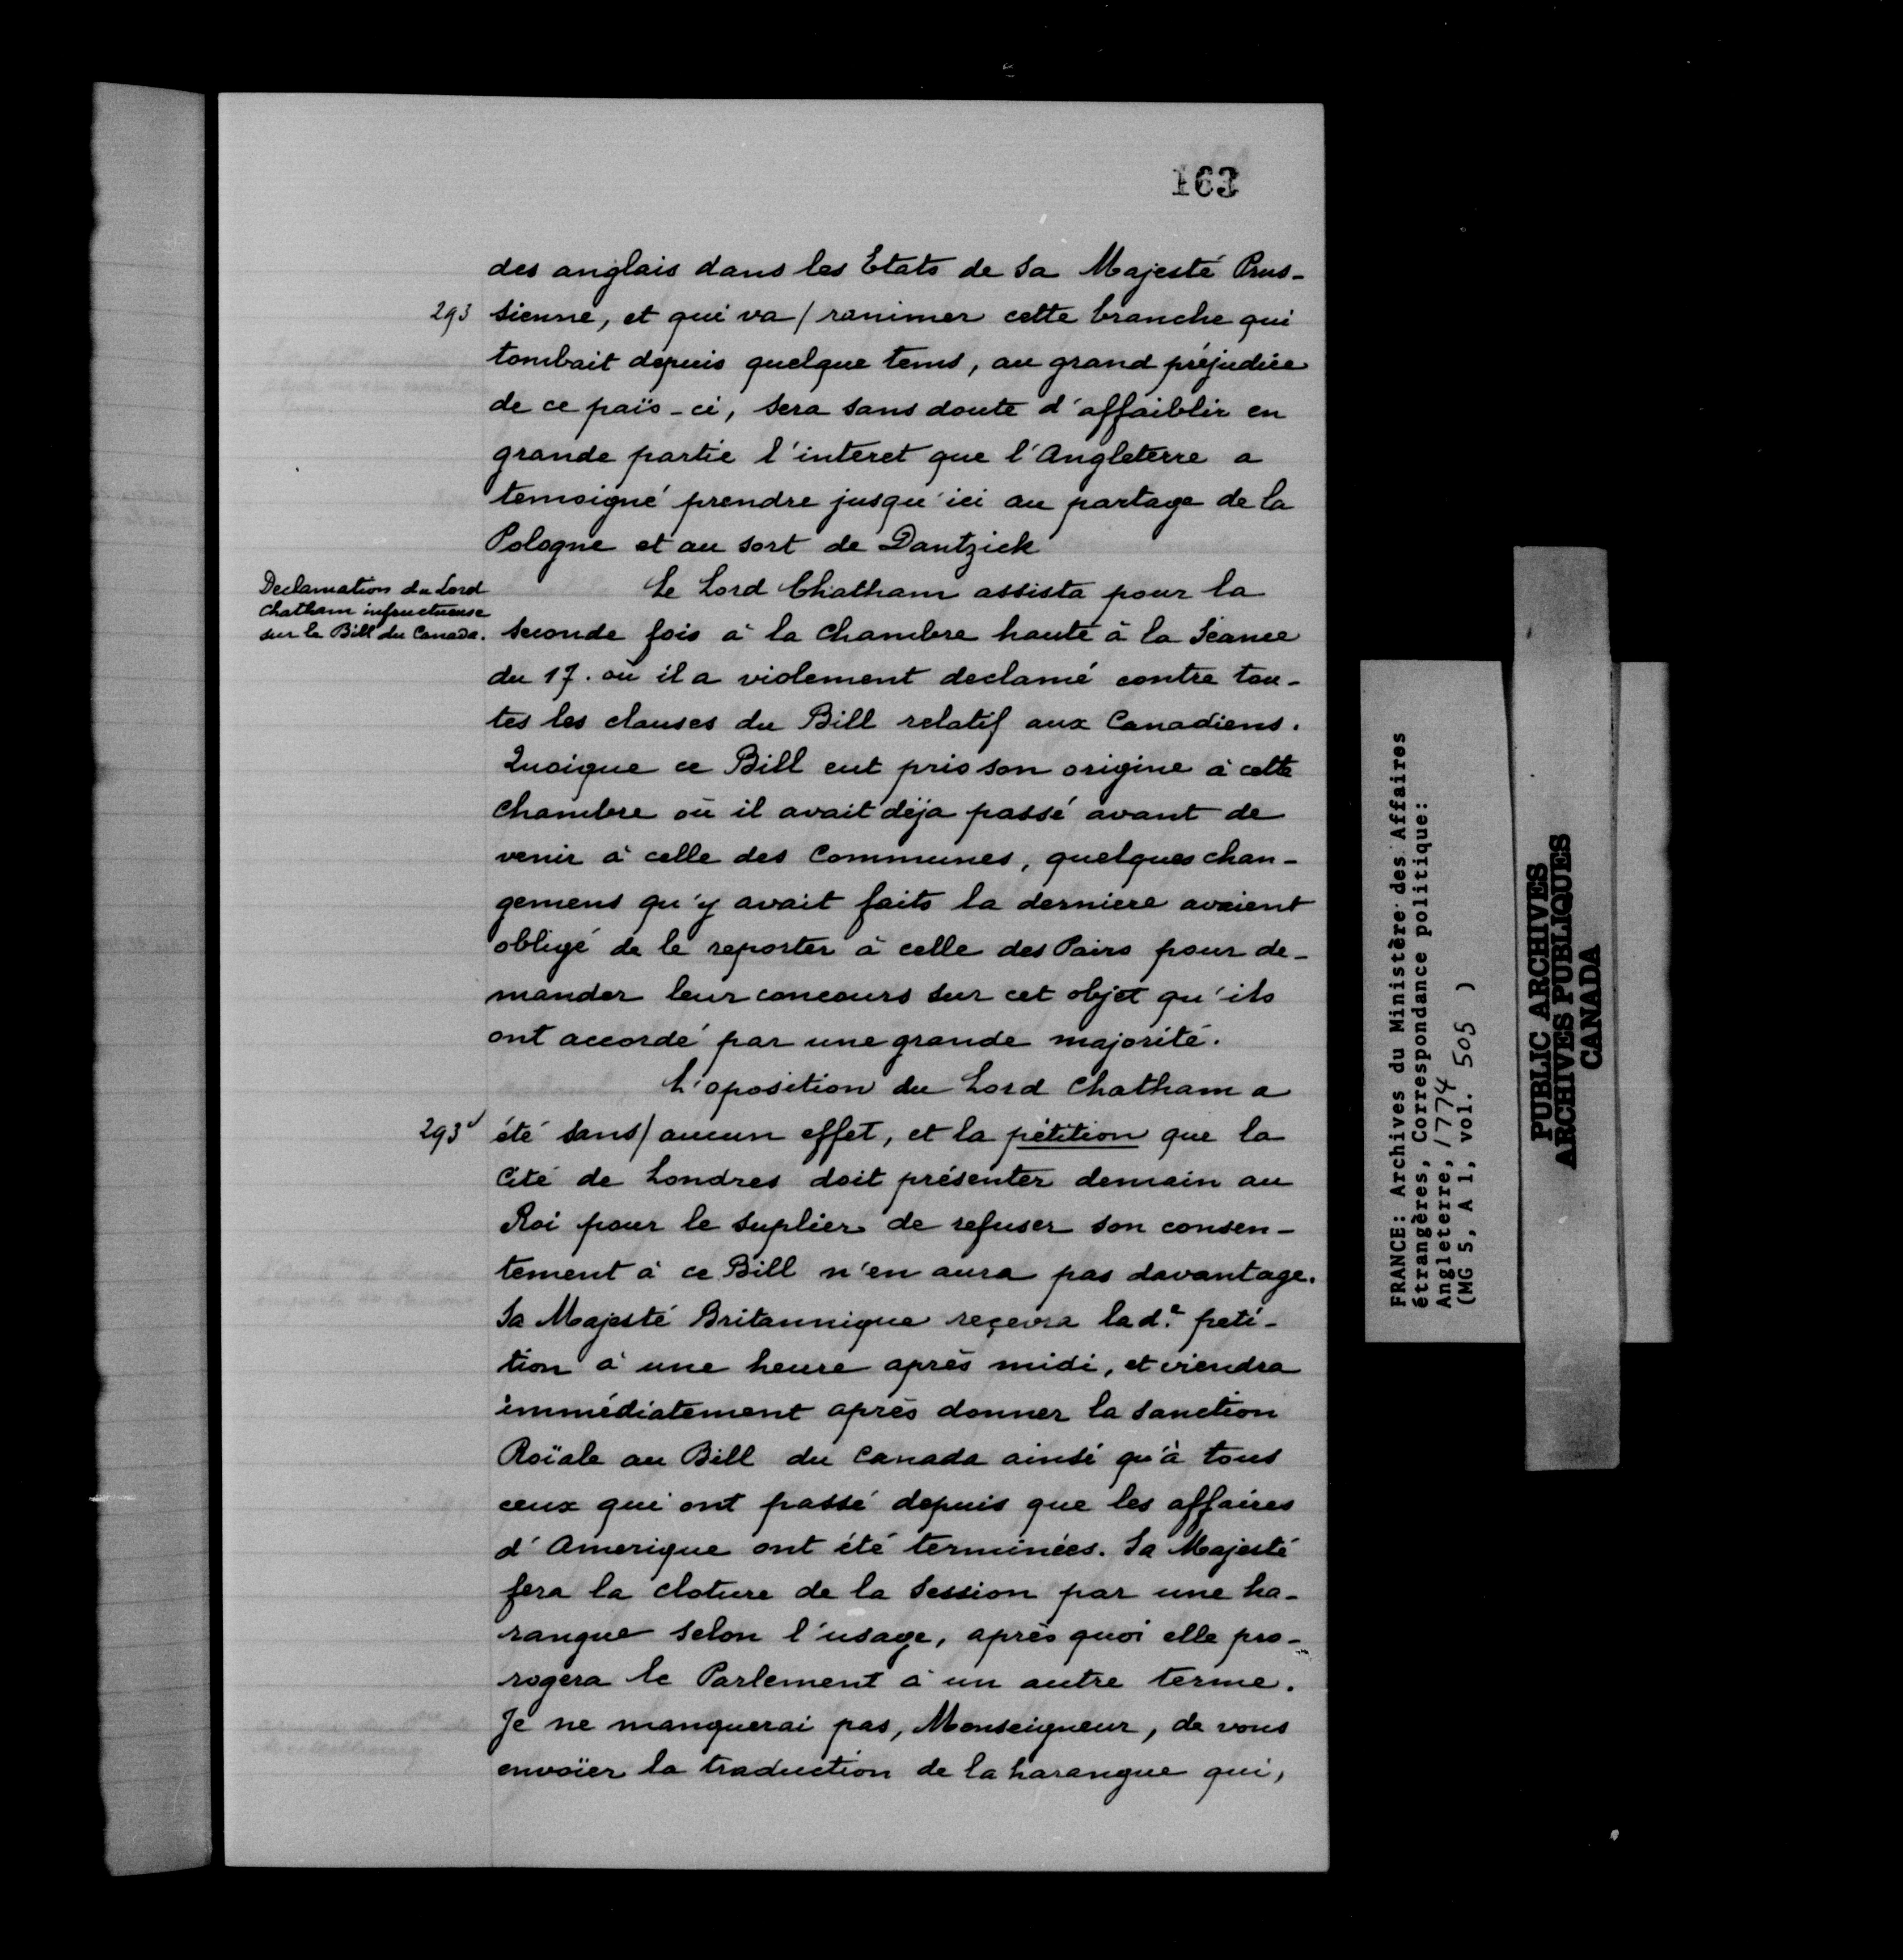 163
des anglais dans les Etats de Sa Majesté Prus-
293 sienne, et qui va / ranimer cette branche qui
tombait depuis quelque tems, au grand préjudice
de ce païs-ci, sera sans doute d'affaiblir en
grande partie l'interet que l'Angleterre a
temoigné prendre jusqu'ici au partage de la
Pologne et au sort de Dantzick
Declamation du Lord
Chatham infructueuse
sur le Bill du Canada.
Le Lord Chatham assista pour la
seconde fois à la Chambre haute à la Séance
du 17. où il a violement declamé contre tou-
tes les clauses du Bill relatif aux Canadiens.
Quoique ce Bill eut pris son origine à cette
Chambre où il avait déja passé avant de
venir à celle des Communes, quelques chan-
gemens qu'y avait faits la derniere avaient
obligé de le reporter à celle des Pairs pour de-
mander leur concours sur cet objet qu'ils
ont accordé par une grande majorité.
L'oposition du Lord Chatham a
293v été sans / aucun effet, et la pétition que la
Cité de Londres doit présenter demain au
Roi pour le suplier de refuser son consen-
tement à ce Bill n'en aura pas davantage.
Sa Majesté Britannique reçevra lad.e peti-
tion à une heure après midi, et viendra
immédiatement après donner la sanction
Roïale au Bill du Canada ainsi qu'à tous
ceux qui ont passé depuis que les affaires
d'Amerique ont été terminées. Sa Majesté
fera la cloture de la Session par une ha-
rangue selon l'usage, après quoi elle pro-
rogera le Parlement à un autre terme.
Je ne manquerai pas, Monseigneur, de vous
envoïer la traduction de la harangue qui,
FRANCE: Archives du Ministère des Affaires
étrangères, Correspondance politique:
Angleterre, 1774
(MG 5, A 1, vol. 505 )
PUBLIC ARCHIVES
ARCHIVES PUBLIQUES
CANADA